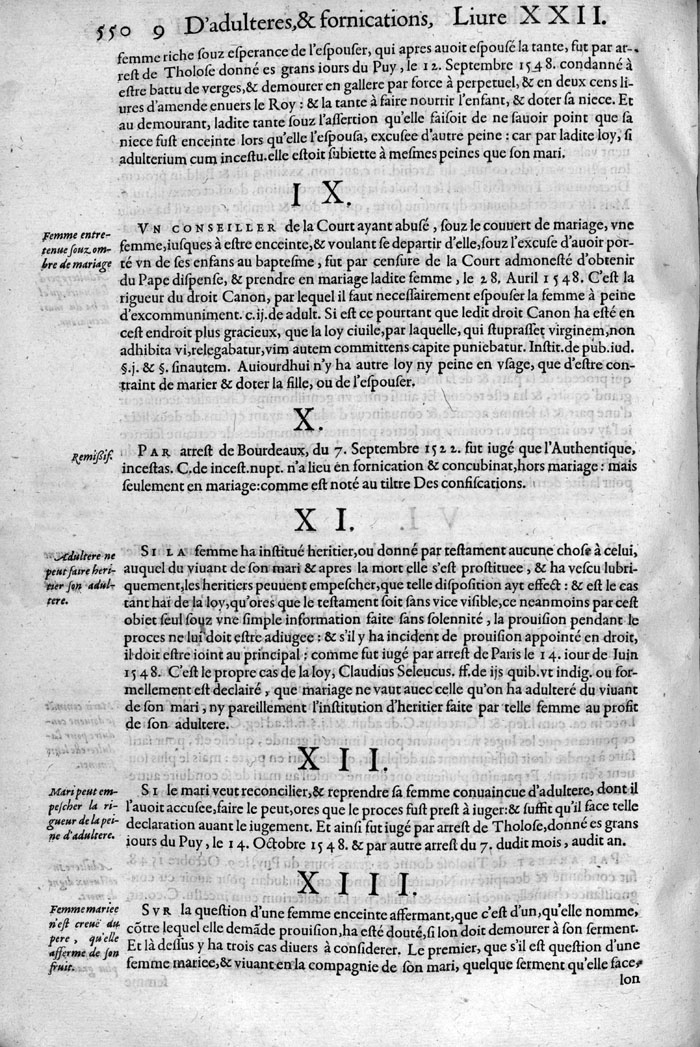 550 9 D'adulteres,& fornications, Liure XXII.
femme riche souz esperance de l'espouser, qui apres auoit espousé la tante, fut par ar-
rest de Tholose donné es grans iours du Puy, le 12. Septembre 1548. condanné à
estre battu de verges,& demourer en gallere par force à perpetuel, & en deux cens li-
ures d'amende enuers le Roy : & la tante à faire nourrir l'enfant, & doter sa niece. Et
au demourant, ladite tante souz l'assertion qu'elle faisoit de ne sauoir point que sa
niece fust enceinte lors qu'elle l'espousa, excusee d'autre peine : car par ladite loy, si
adulterium cum incestu. elle estoit subiette à mesmes peines que son mari.
IX.
Femme entre-
tenue souz om-
bre de mariage
VN CONSEILLER de la Court ayant abusé, souz le couuert de mariage, vne
femme, iusques à estre enceinte,& voulant se departir d'elle, souz l'excuse d'auoir por-
té vn de ses enfans au baptesme, fut par censure de la Court admonesté d'obtenir
du Pape dispense, & prendre en mariage ladite femme, le 28. Auril 1548. C'est la
rigueur du droit Canon, par lequel il faut necessairement espouser la femme à peine
d'excommuniment. c.ij.de adult. Si est ce pourtant que ledit droit Canon ha esté en
cest endroit plus gracieux, que la loy ciuile, par laquelle, qui stuprasset virginem, non
adhibita vi, relegabatur, vim autem committens capite puniebatur. Instit. de pub. iud.
§.j. & §. sinautem. Auiourdhui n'y ha autre loy ny peine en vsage, que d'estre con-
traint de marier & doter la fille, ou de l'espouser.
X.
Remißif.
PAR arrest de Bourdeaux, du 7. Septembre 1522. fut iugé que l'Authentique,
incestas. C. de incest. nupt. n'a lieu en fornication & concubinat, hors mariage : mais
seulement en mariage: comme est noté au tiltre Des confiscations.
XI.
Adultere ne
peut faire heri-
tier son adul-
tere.
SI LA femme ha institué heritier, ou donné par testament aucune chose à celui,
auquel du viuant de son mari & apres la mort elle s'est prostituee, & ha vescu lubri-
quement, les heritiers peuuent empescher, que telle disposition ayt effect : & est le cas
tant hai de la loy, qu'ores que le testament soit sans vice visible, ce neanmoins par cest
obiet seul souz vne simple information faite sans solennité, la prouision pendant le
proces ne lui doit estre adiugee : & s'il y ha incident de prouision appointé en droit,
il doit estre ioint au principal : comme fut iugé par arrest de Paris le 14. iour de Iuin
1548. C'est le propre cas de la loy, Claudius Seleucus. ff. de ijs quib. vt indig. ou for-
mellement est declairé, que mariage ne vaut auec celle qu'on ha adulteré du viuant
de son mari, ny pareillement l'institution d'heritier faite par telle femme au profit
de son adultere.
XII.
Mari peut em-
pescher la ri-
gueur de la pei-
ne d'adultere.
SI le mari veut reconcilier,& reprendre sa femme conuaincue d'adultere, dont il
l'auoit accusee, faire le peut, ores que le proces fust prest à iuger:& suffit qu'il face telle
declaration auant le iugement. Et ainsi fut iugé par arrest de Tholose, donné es grans
iours du Puy, le 14. Octobre 1548. & par autre arrest du 7. dudit mois, audit an.
XIII.
Femme mariee
n'est creuë du
pere, qu'elle
afferme de son
fruit.
SVR la question d'une femme enceinte affermant, que c'est d'un, qu'elle nomme,
cõtre lequel elle demãde prouision, ha esté douté, si lon doit demourer à son serment.
Et là dessus y ha trois cas diuers à considerer. Le premier, que s'il est question d'une
femme mariee,& viuant en la compagnie de son mari, quelque serment qu'elle face,
lon